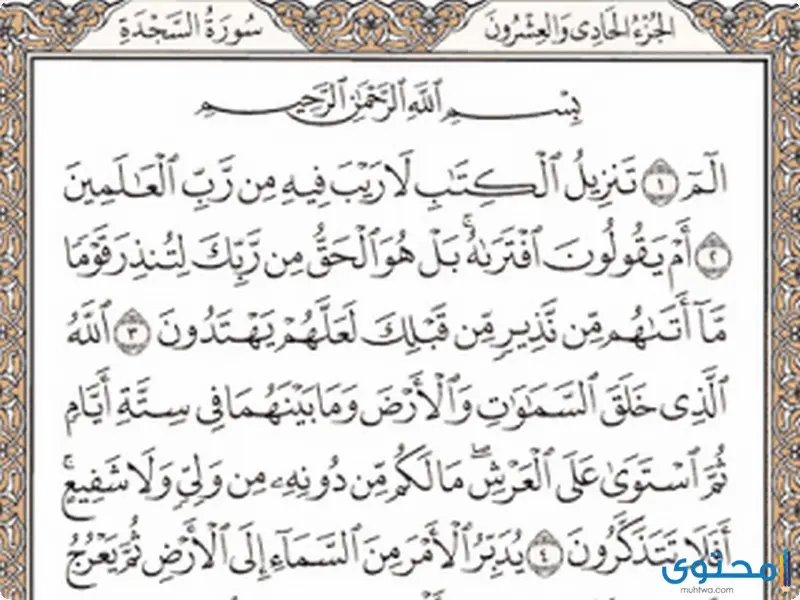 الجُزْءُ الحَادِى وَالعِشْرُونَ
سُورَةُ السَّجْدَةِ
بِسْمِ ٱللَّهِ ٱلرَّحْمَٰنِ ٱلرَّحِيمِ
الٓمٓ ١ تَنزِيلُ ٱلْكِتَٰبِ لَا رَيْبَ فِيهِ مِن رَّبِّ ٱلْعَٰلَمِينَ
٢ أَمْ يَقُولُونَ ٱفْتَرَىٰهُۚ بَلْ هُوَ ٱلْحَقُّ مِن رَّبِّكَ لِتُنذِرَ قَوْمًا
مَّآ أَتَىٰهُم مِّن نَّذِيرٍ مِّن قَبْلِكَ لَعَلَّهُمْ يَهْتَدُونَ ٣ ٱللَّهُ
ٱلَّذِى خَلَقَ ٱلسَّمَٰوَٰتِ وَٱلْأَرْضَ وَمَا بَيْنَهُمَا فِى سِتَّةِ أَيَّامٍ
ثُمَّ ٱسْتَوَىٰ عَلَى ٱلْعَرْشِۖ مَا لَكُم مِّن دُونِهِۦ مِن وَلِىٍّ وَلَا شَفِيعٍۚ
أَفَلَا تَتَذَكَّرُونَ ٤ يُدَبِّرُ ٱلْأَمْرَ مِنَ ٱلسَّمَآءِ إِلَى ٱلْأَرْضِ ثُمَّ يَعْرُجُ
محتوى
muhtwa.com